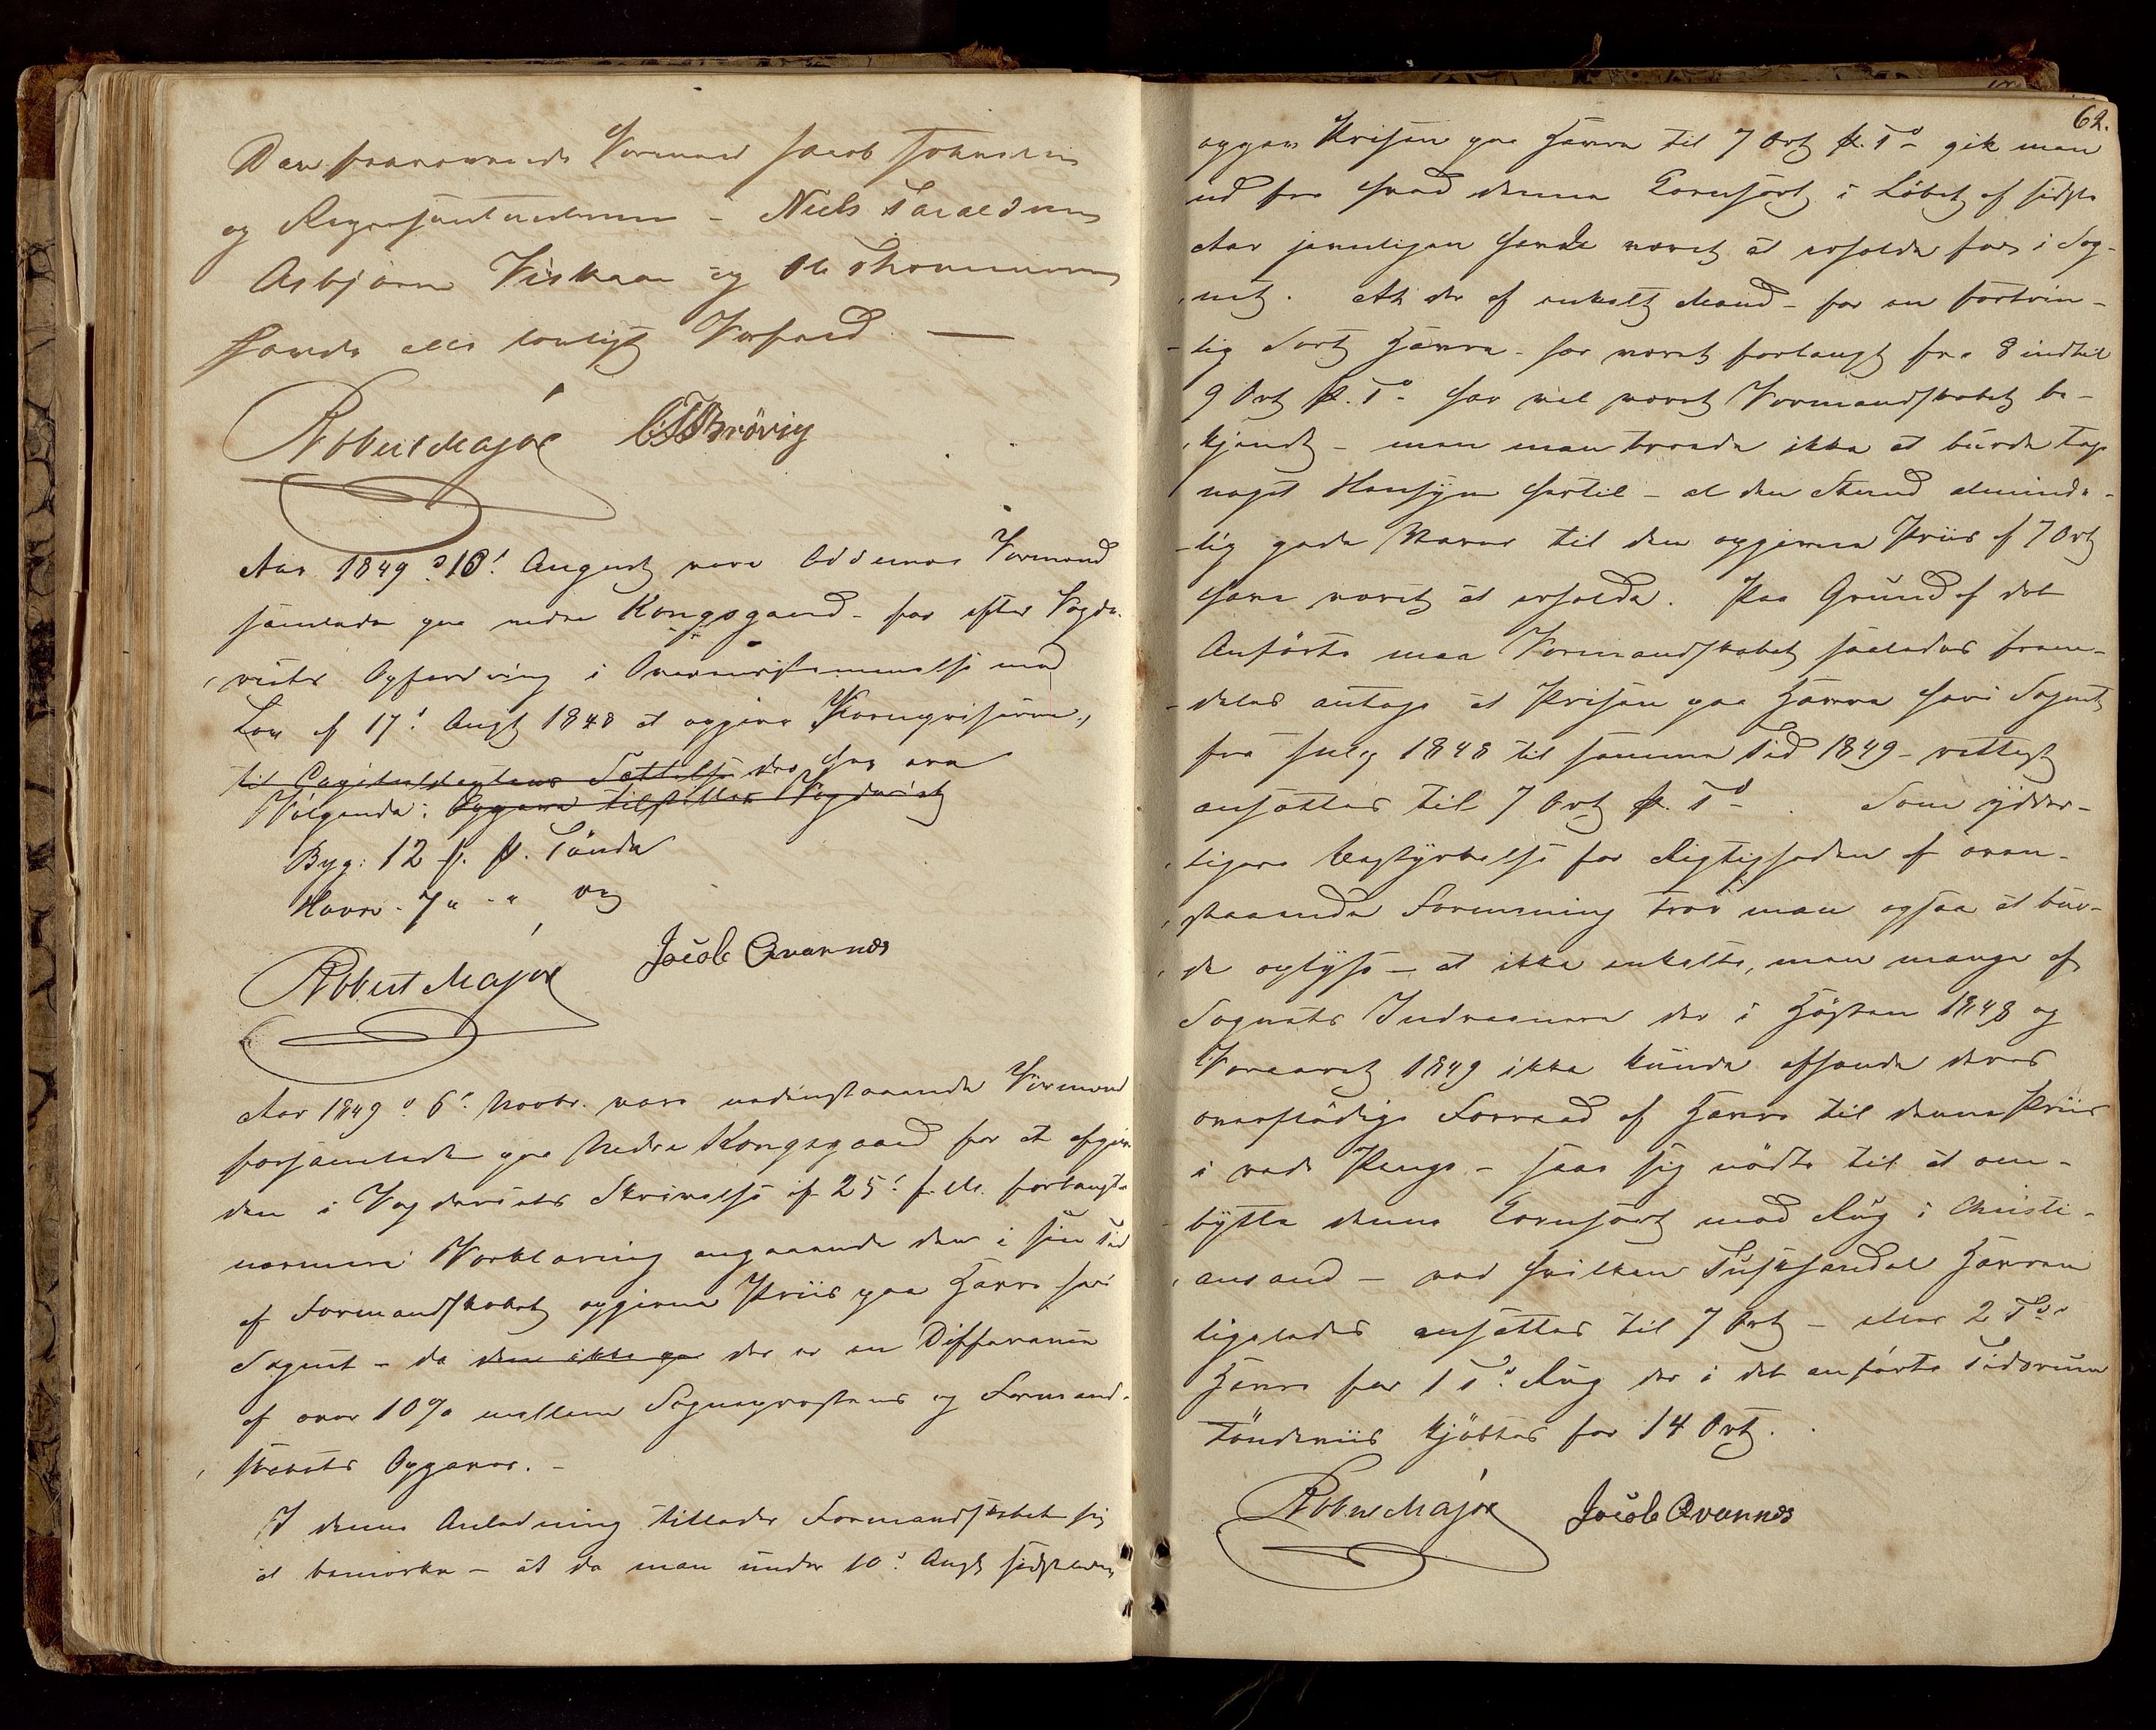 De fraværende Formænd Jacob Johnsen
og Repræsentanterne - Niels Taraldsen
Asbjørn Viskaar og Ole Thommesen
havde alle lovligt Forfald. —
Robert Major CTBrövig
Aar 1849 d. 10de August vare Oddernes Formænd
samlede paa nedre Kongsgaard - for efter Fogde-
riets Opfordring i Overensstemmelse med
Lov af 17de Augt 1848 at opgive Kornpriserne,
til Capitelstaxtens Sættelse der her ere
Følgende: Opgave tilstilles Fogderiet
Byg: 12 f. pr. Tønde
Havre - 7 " - "
Robert Major Jacob Qvarnes
Aar 1849 d. 6te Novbr. vare nedenstaaende Formænd
forsamlede paa Nedre Kongsgaard for at afgive
den i Fogderiets Skrivelse af 25de f. M. forlangte
nærmere Forklaring angaaende den i sin Tid
af Formandskabet opgivne Priis paa Havre her i
Sognet - da den ikke der er en Differance
af over 10% mellem Sognepræstens og Formand-
skabets Opgaver. -
I denne Anledning tillader Formandskabet sig
at bemærke - at da man under 10de Augt sidstleden
62.
opgav Prisen paa Havre til 7 Ort pr. Td - gik man
ud fra hvad denne Kornsort i Løbet af sidste
Aar jævnligen havde været at erholde for i Sog-
net. At der af enkelt Mand - for en fortrin-
lig Sort Havre - har været forlangt fra 8 indtil
9 Ort pr. Td - har vel været Formandskabet be-
kjendt - men man troede ikke at burde tage
noget Hensyn hertil - al den Stund alminde-
lig gode Varer til den opgivne Priis af 7 Ort
have været at erholde. Paa Grund af det
Anførte maa Formandskabet saaledes frem-
deles antage at Prisen paa Havre her i Sognet
fra July 1848 til samme Tid 1849 - rettest
ansættes til 7 Ort pr. Td - . Som ydder-
ligere Bestyrkelse for Rigtigheden af oven-
staaende Formening tror man ogsaa at bur-
de oplyse - at ikke enkelte, men mange af
Sognets Indvaanere der i Høsten 1848 og
Foraaret 1849 ikke kunde afhænde deres
overflødige Forraad af Havre til denne Priis
i rede Penge - saae sig nødte til at om-
bytte denne Kornsort mod Rug i Christi-
ansand - ved hvilken Tuskhandel Havren
ligeledes ansattes til 7 Ort - eller 2 Tdr
Havre for 1 Td. Rug der i det anførte Tidsrum
Töndeviis kjøbtes for 14 Ort.
Robert Major Jacob Qvarnes